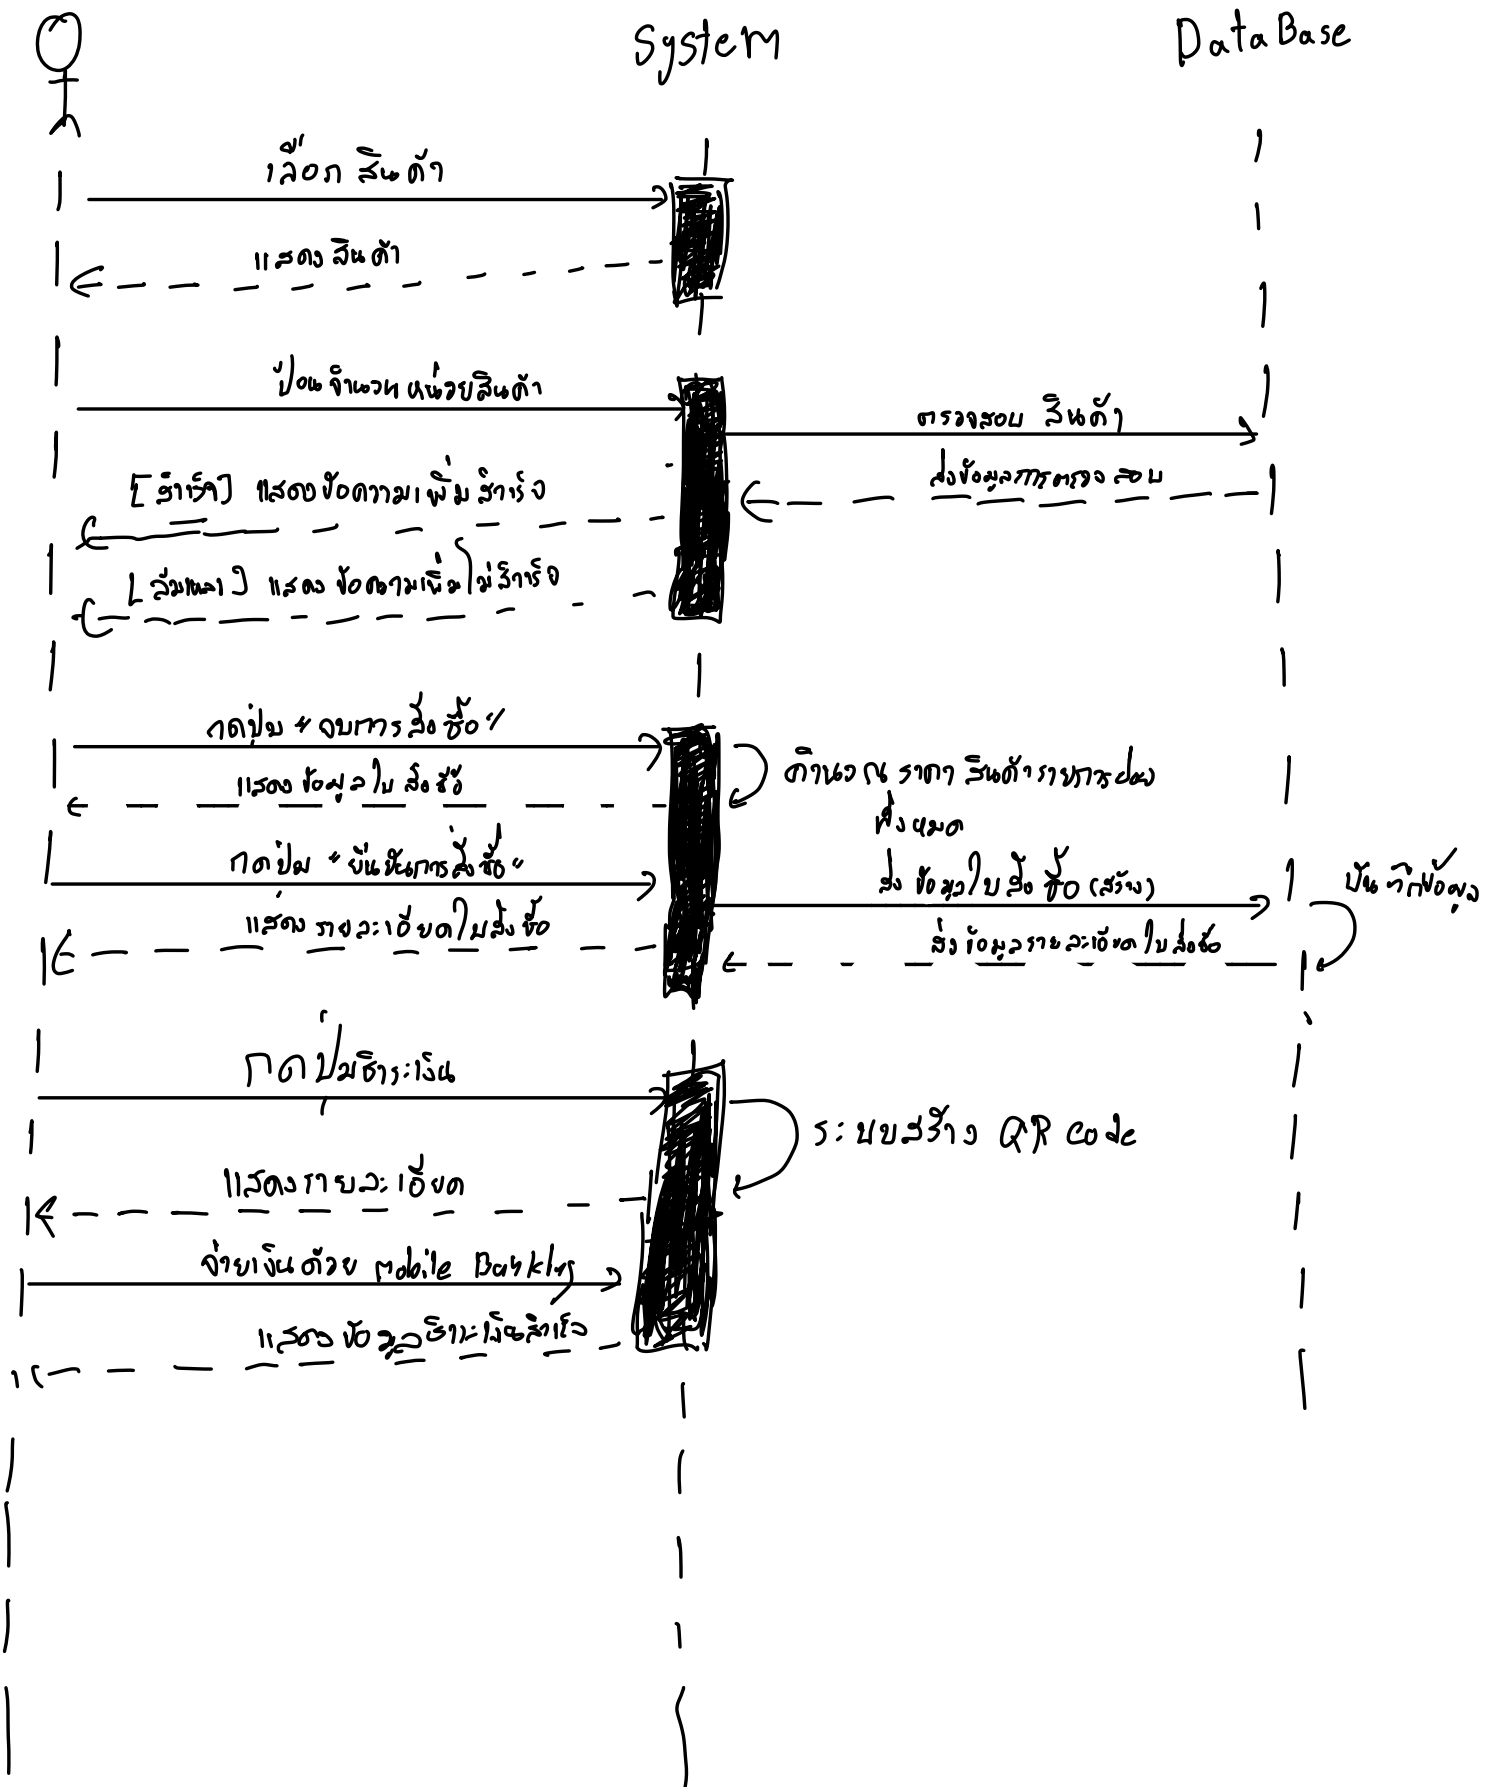 System
DataBase
เลือก สินค้า
แสดงสินค้า
ป้อนจำนวนหน่วยสินค้า
ตรวจสอบ สินค้า
[สำเร็จ] แสดงข้อความเพิ่มสำเร็จ
ส่งข้อมูลการตรวจสอบ
[ล้มเหลว] แสดงข้อความเพิ่มไม่สำเร็จ
กดปุ่ม "จบการสั่งซื้อ"
แสดงข้อมูลใบสั่งซื้อ
คำนวณ ราคา สินค้ารายการย่อย
ทั้งหมด
กดปุ่ม "ยืนยันการสั่งซื้อ"
ส่ง ข้อมูลใบสั่งซื้อ (สร้าง)
บันทึกข้อมูล
แสดง รายละเอียดใบสั่งซื้อ
ส่งข้อมูลรายละเอียดใบสั่งซื้อ
กดปุ่มชำระเงิน
ระบบสร้าง QR code
แสดงรายละเอียด
จ่ายเงินด้วย mobile Banking
แสดงข้อมูลชำระเงินสำเร็จ